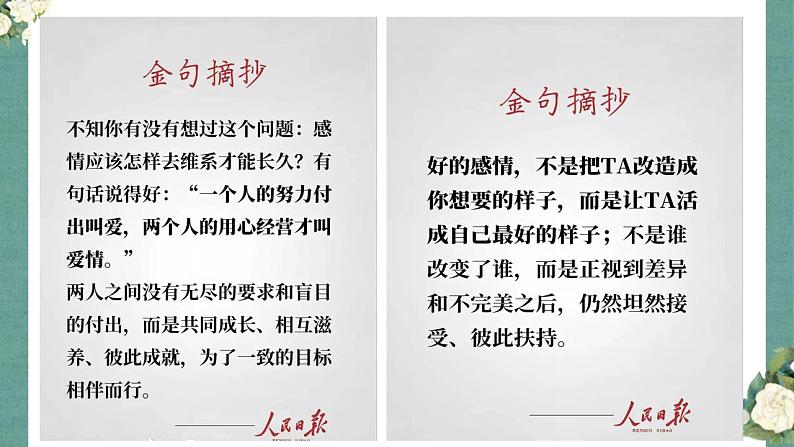 金句摘抄
不知你有没有想过这个问题：感
情应该怎样去维系才能长久？有
句话说得好：“一个人的努力付
出叫爱，两个人的用心经营才叫
爱情。”
两人之间没有无尽的要求和盲目
的付出，而是共同成长、相互滋
养、彼此成就，为了一致的目标
相伴而行。
人民日报
RENMIN RIBAO
金句摘抄
好的感情，不是把TA改造成
你想要的样子，而是让TA活
成自己最好的样子；不是谁
改变了谁，而是正视到差异
和不完美之后，仍然坦然接
受、彼此扶持。
人民日报
RENMIN RIBAO